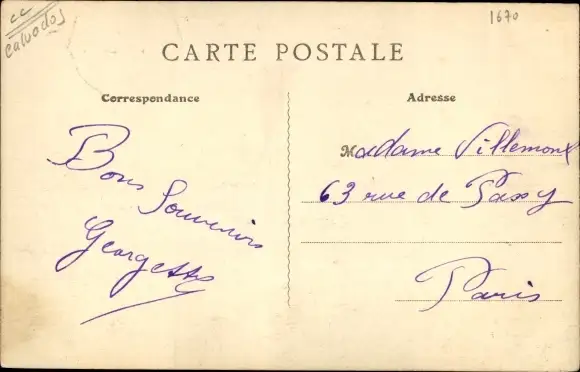 cc
Calvados
1670
CARTE POSTALE
Correspondance
Adresse
Bons
Souvenirs
Georgette
Madame Villemont
63 rue de Passy
Paris